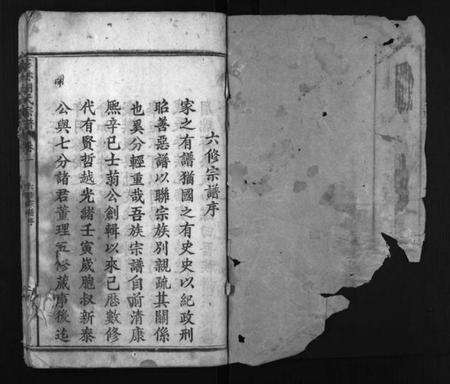 六修宗譜序
家之有譜猶國之有史史以紀政刑
昭善惡譜以聯宗族別親疏其關係
也異分輕重哉吾族宗譜自前清康
熙辛巳士翁公創輯以來已歷數修
代有賢哲越光緒壬寅歲胞叔新泰
公與七分諸君董理五修蕆厥後迄